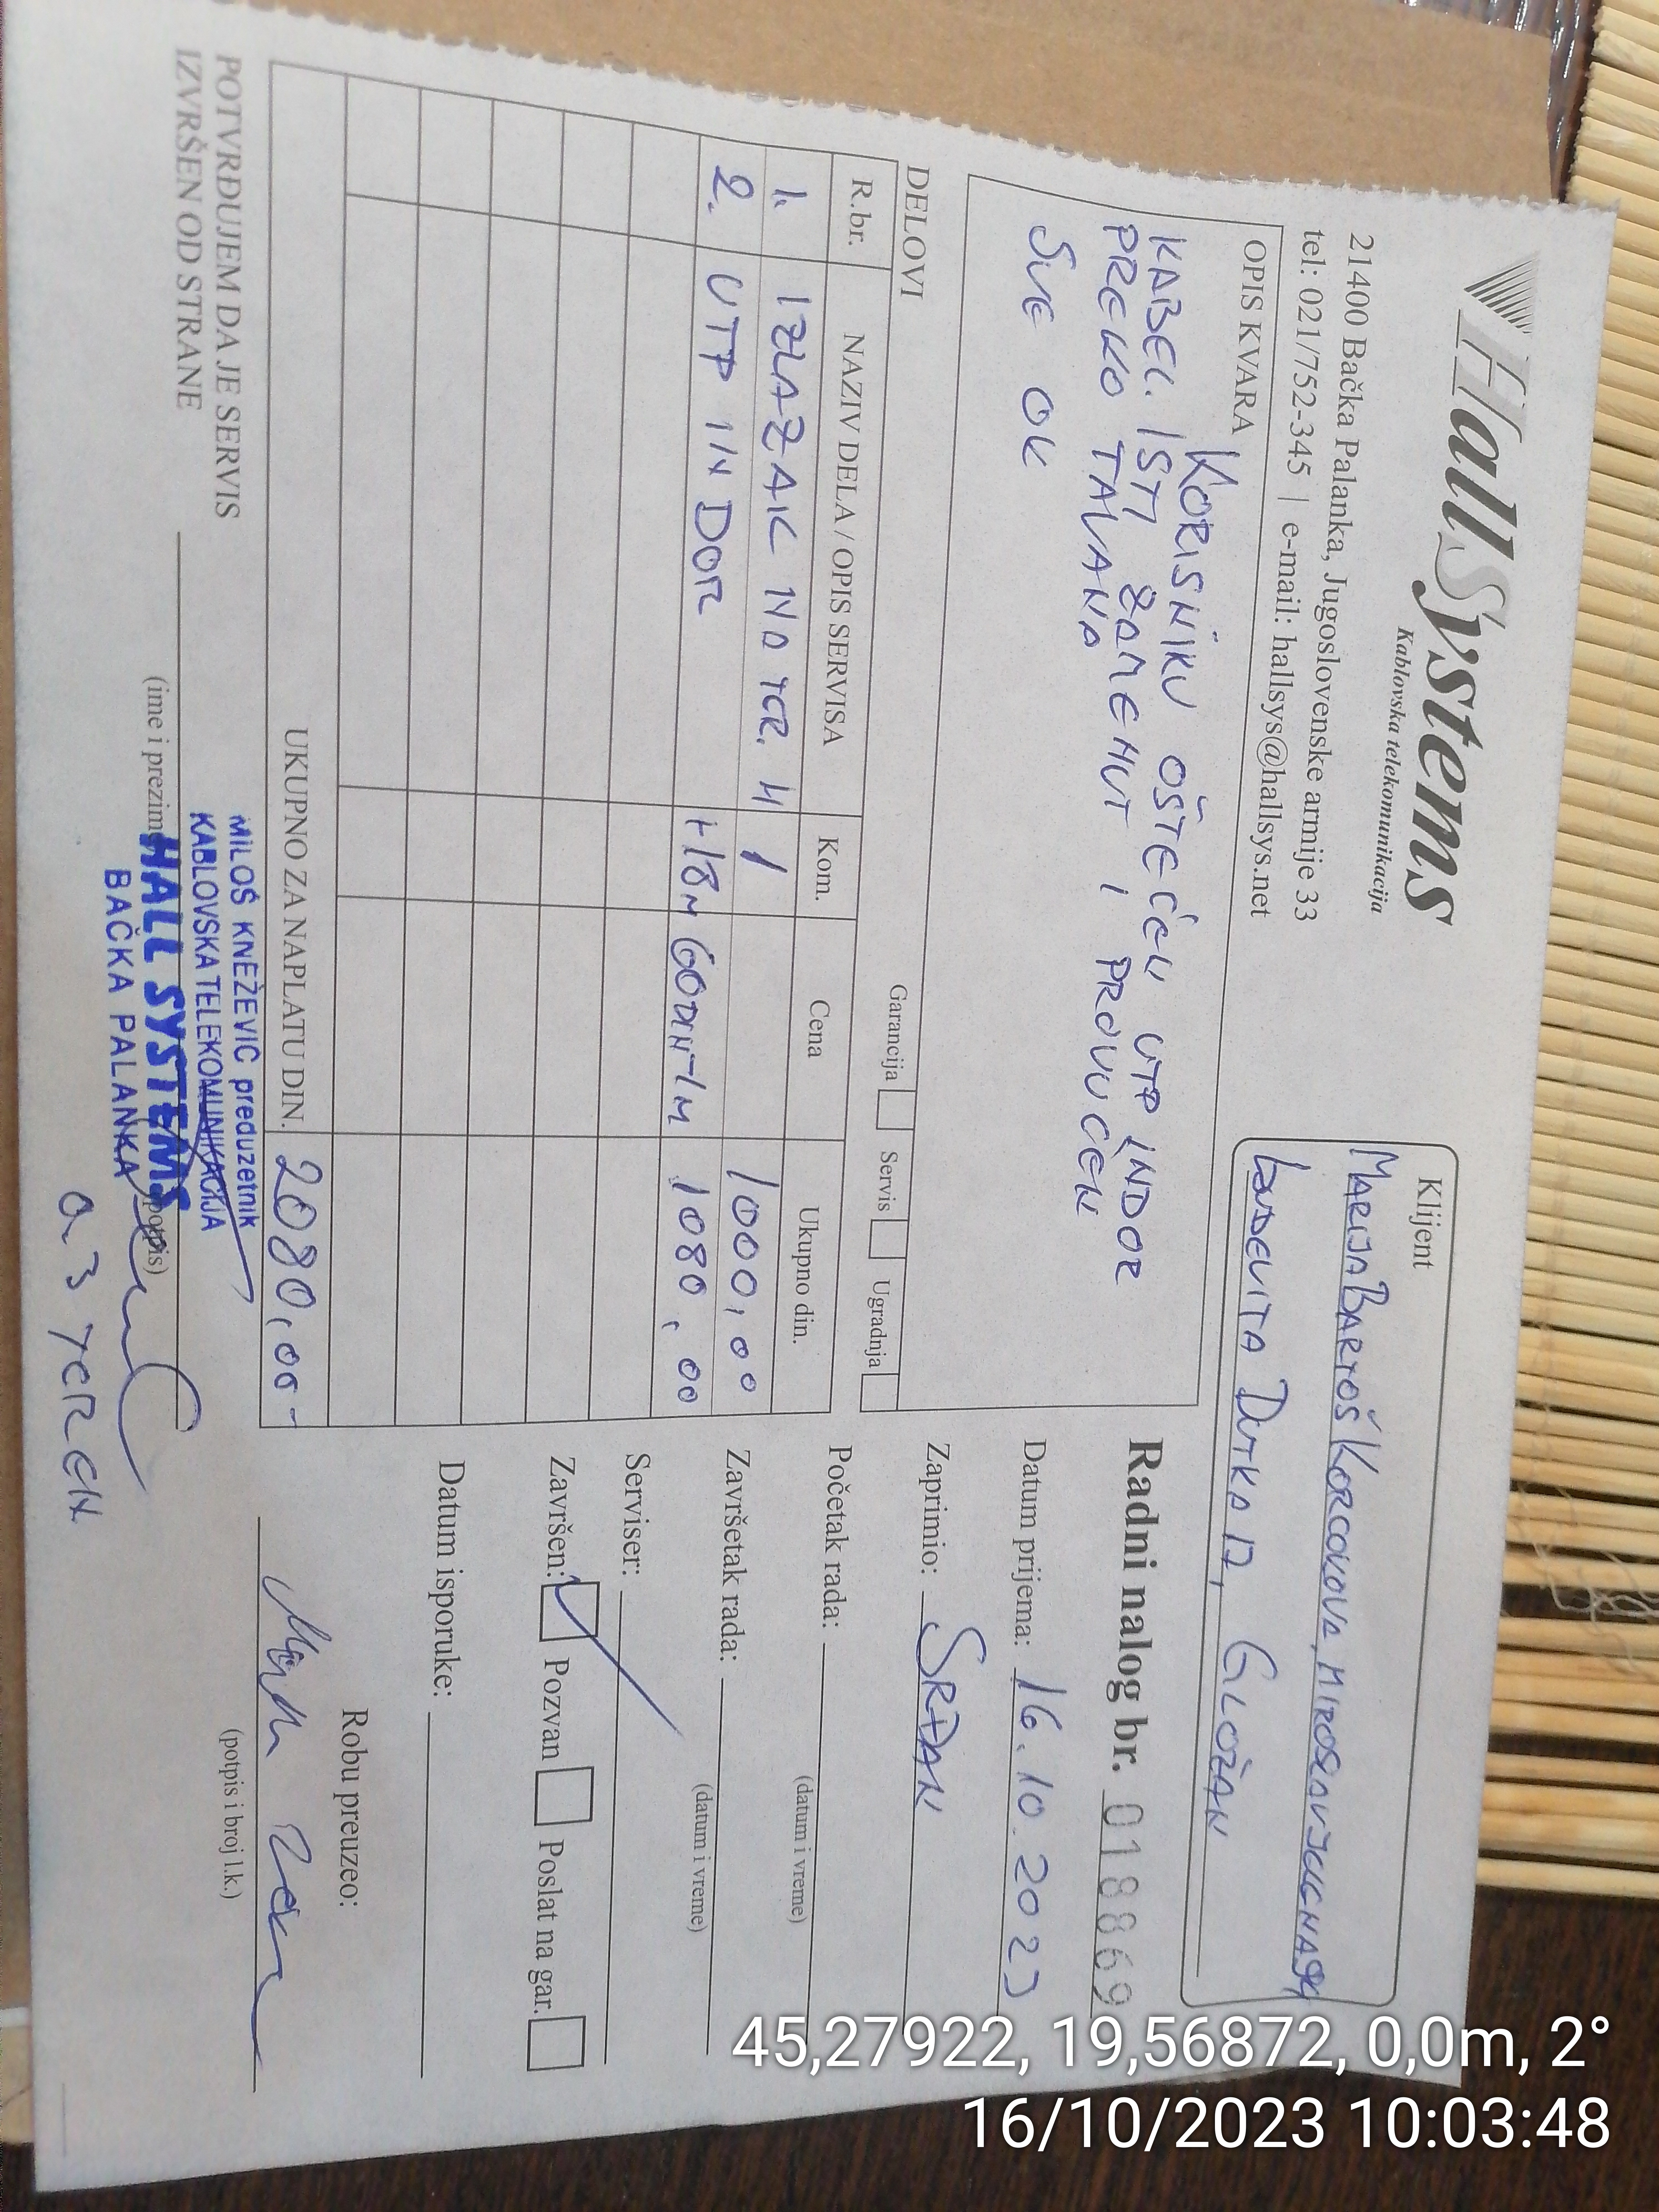 HallSystems
Kablovska telekomunikacija
21400 Bačka Palanka, Jugoslovenske armije 33
tel: 021/752-345 | e-mail: hallsys@hallsys.net
Klijent
MARIJA BARTOŠ KORČOKOVA,
LUDEVITA 17, GLOŽAN
OPIS KVARA
KORISNIKU OŠTEĆEN UTP INDOR
KABEL. ISTI ZAMENUT I PROVUČEN
PREKO TAVANA
SVE OK
Radni nalog br. 018869
Datum prijema: 16.10.2023
Zaprimio: SRĐAN
Početak rada:
(datum i vreme)
Završetak rada:
(datum i vreme)
Serviser:
Završen: Pozvan Poslat na gar.
Datum isporuke:
Robu preuzeo:
(potpis i broj l.k.)
DELOVI
Garancija Servis Ugradnja
R.br. NAZIV DELA / OPIS SERVISA Kom. Cena Ukupno din.
1. IZLAZAK NA TER. 1 1000,00
2. UTP INDOR 18M 60DIN-1M 1080,00
UKUPNO ZA NAPLATU DIN. 2080,00
POTVRĐUJEM DA JE SERVIS
IZVRŠEN OD STRANE
(ime i prezime) (potpis)
MILOŠ KNEŽEVIĆ preduzetnik
KABLOVSKA TELEKOMUNIKACIJA
HALL SYSTEMS
BAČKA PALANKA
45,27922, 19,56872, 0,0m, 2°
16/10/2023 10:03:48